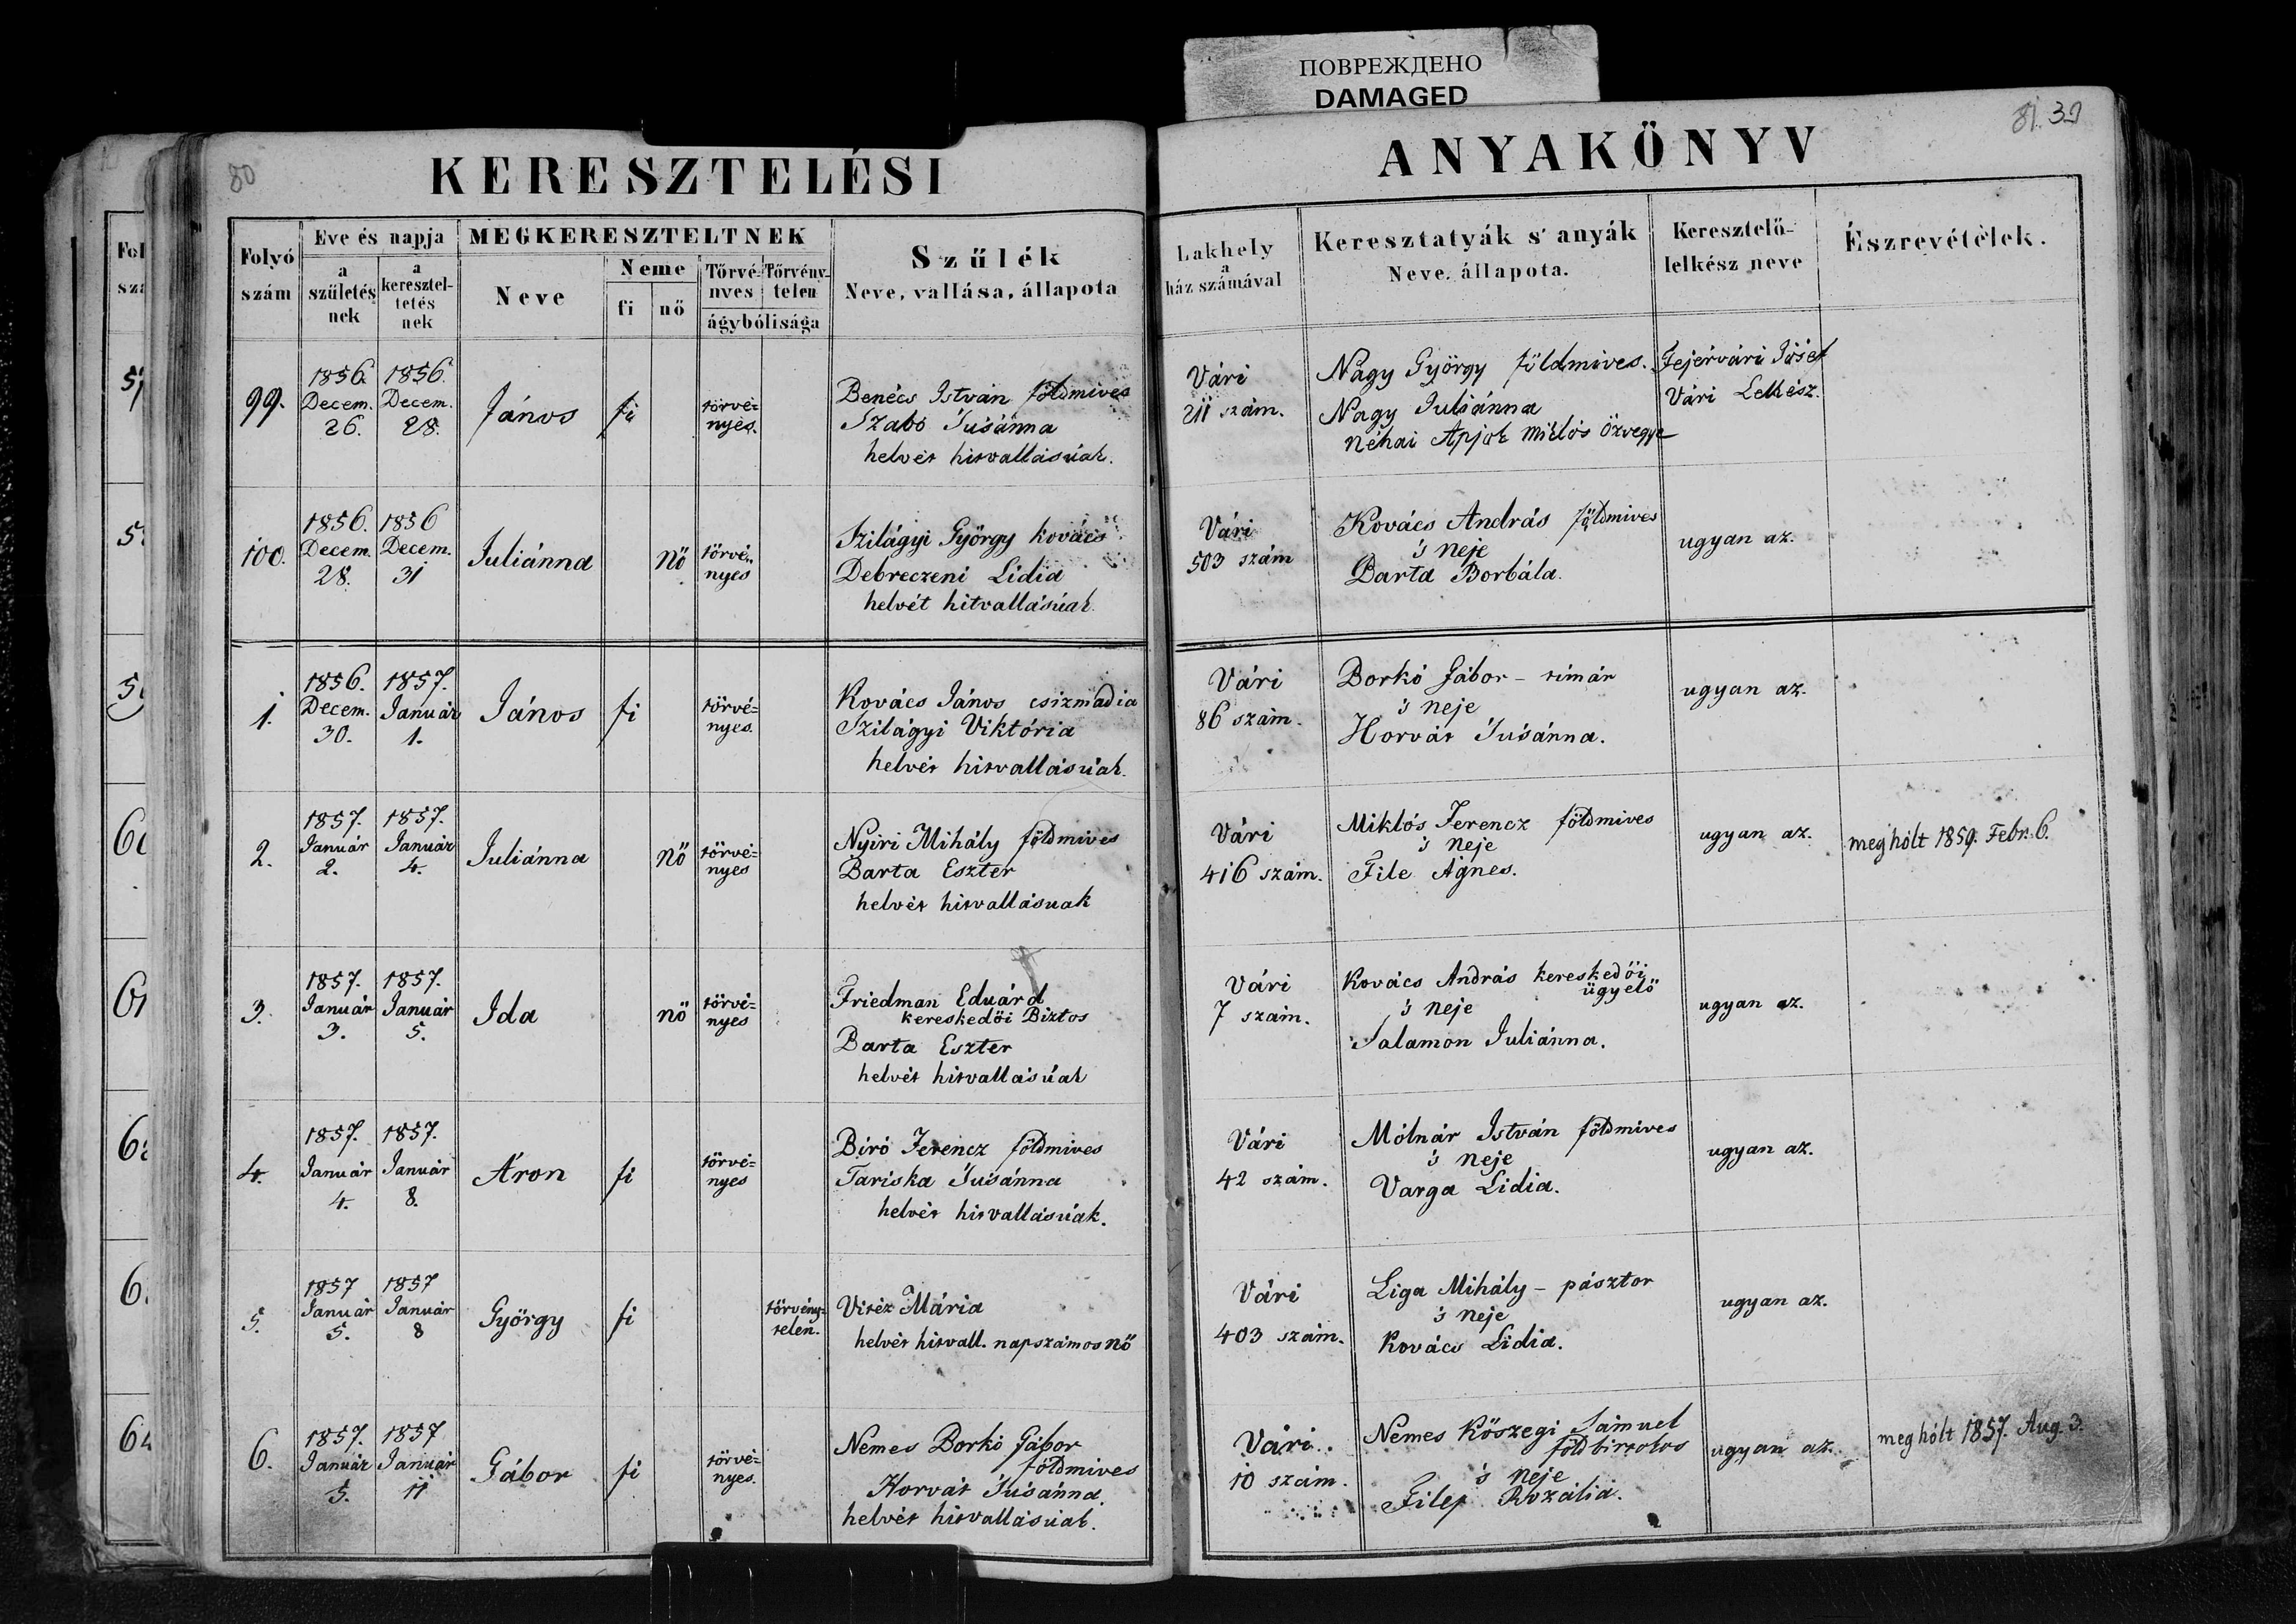 ПОВРЕЖДЕНО
DAMAGED
80
KERESZTELÉSI
ANYAKÖNYV
81.
Folyó szám
Eve és napja
a születés nek
a keresztel- tetés nek
MEGKERESZTELTNEK
Neve
Neme
fi
nő
Törvé- nyes
Törvény- telen
ágybólisága
Szűlék
Neve, vallása, állapota
Lakhely
a
ház számával
Keresztatyák s' anyák
Neve, állapota.
Keresztelő-
lelkész neve
Észrevételek.
99.
1856. Decem. 26.
1856. Decem. 28.
János
fi
törvé= nyes.
Benécs István földmives
Szabó Susánna
helvét hitvallásúak.
Vári
211 szám.
Nagy György földmives.
Nagy Juliánna
néhai Apjok Miklós özvegye
Fejérvári Jósef
Vári Lelkész.
100.
1856. Decem. 28.
1856 Decem. 31
Juliánna
nő
törvé= nyes
Szilágyi György kovács
Debreczeni Lidia
helvét hitvallásúak.
Vári
503 szám
Kovács András földmives
's neje
Barta Borbála.
ugyan az.
1.
1856. Decem. 30.
1857. Január 1.
János
fi
törvé= nyes.
Kovács János csizmadia
Szilágyi Viktória
helvét hitvallásúak.
Vári
86 szám.
Borkó Gábor - timár
's neje
Horvát Susánna.
ugyan az.
2.
1857. Január 2.
1857. Január 4.
Juliánna
nő
törvé= nyes
Nyiri Mihály földmives
Barta Eszter
helvét hitvallásuak
Vári
416 szám.
Miklós Ferencz földmives
's neje
File Ágnes.
ugyan az.
meghólt 1859. Febr. 6.
3.
1857. Január 3.
1857. Január 5.
Ida
nő
törvé= nyes
Friedman Eduárd
kereskedői Biztos
Barta Eszter
helvét hitvallásúak
Vári
7 szám.
Kovács András kereskedői
ügyelő
's neje
Salamon Juliánna.
ugyan az.
4.
1857. Január 4.
1857. Január 8.
Áron
fi
törvé= nyes
Biró Ferencz földmives
Tariska Susánna
helvét hitvallásúak.
Vári
42 szám.
Mólnár István földmives
's neje
Varga Lidia.
ugyan az.
5.
1857 Január 5.
1857 Január 8
György
fi
törvény= telen.
Vitéz Mária
helvét hitvall. napszámos nő
Vári
403 szám.
Liga Mihály - pásztor
's neje
Kovács Lidia.
ugyan az.
6.
1857. Január 5.
1857 Január 11
Gábor
fi
törvé= nyes.
Nemes Borkó Gábor
földmives
Horvát Susánna.
helvét hitvallásúak.
Vári.
10 szám.
Nemes Kőszegi Sámuel
földbirtokos
's neje
Filep Rozália.
ugyan az.
meghólt 1857. Aug. 3.